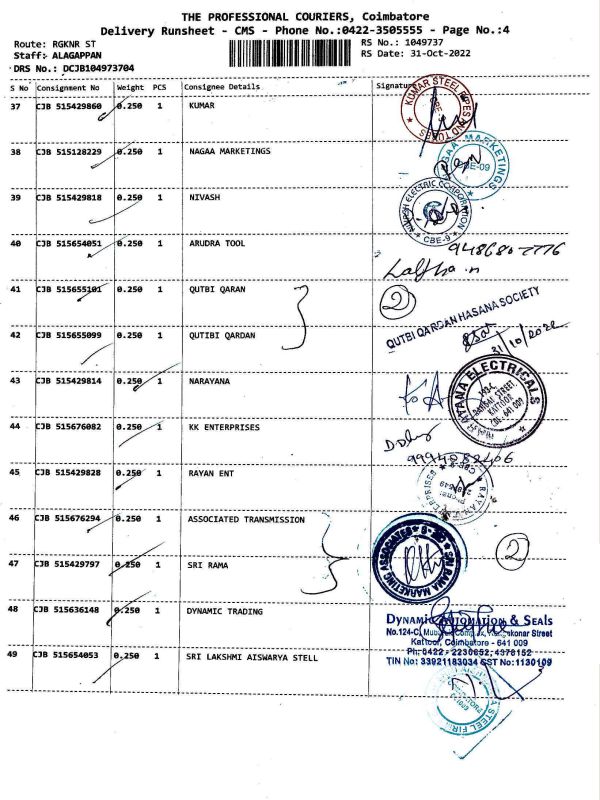 THE PROFESSIONAL COURIERS, Coimbatore
Delivery Runsheet - CMS - Phone No.:0422-3505555 - Page No.:4
Route: RGKNR ST
Staff: ALAGAPPAN
DRS No.: DCJB104973704
RS No.: 1049737
RS Date: 31-Oct-2022
S No Consignment No Weight PCS Consignee Details Signature
37 CJB 515429860 0.250 1 KUMAR
KUMAR STEEL PIPES AND TUBES
38 CJB 515128229 0.250 1 NAGAA MARKETINGS
MARKETINGS
CBE-09
39 CJB 515429818 0.250 1 NIVASH
ELECTRIC CORPORATION
CBE-9
40 CJB 515654051 0.250 1 ARUDRA TOOL
41 CJB 515655101 0.250 1 QUTBI QARAN
2
QUTBI QARDAN HASANA SOCIETY
31/10/2022
42 CJB 515655099 0.250 1 QUTIBI QARDAN
43 CJB 515429814 0.250 1 NARAYANA
NARAYANA ELECTRICALS
KATTOOR
CBE-641 009
44 CJB 515676082 0.250 1 KK ENTERPRISES
45 CJB 515429828 0.250 1 RAYAN ENT
46 CJB 515676294 0.250 1 ASSOCIATED TRANSMISSION
2
47 CJB 515429797 0.250 1 SRI RAMA
SRI RAMA MARKETING ASSOCIATES
48 CJB 515636148 0.250 1 DYNAMIC TRADING
DYNAMIC AUTOMATION & SEALS
No.124-C, Complex, Street
Kattoor, Coimbatore - 641 009
Ph: 0422 - 2230652, 4378152
TIN No: 33921183034 CST No:1130109
49 CJB 515654053 0.250 1 SRI LAKSHMI AISWARYA STELL
STEEL